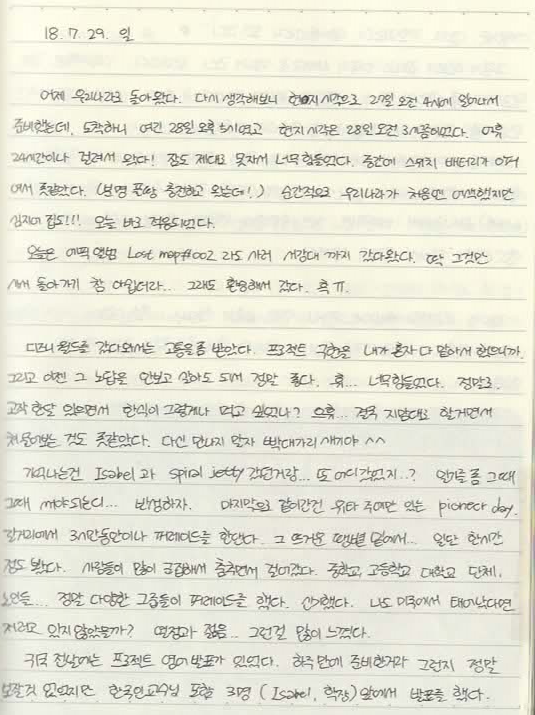 18. 7. 29. 일
어제 우리나라로 돌아왔다. 다시 생각해보니 현지시각으로 27일 오전 4시에 일어나서
준비했는데, 도착하니 여긴 28일 오후 5시였고 현지시각은 28일 오전 3시쯤이었다. 어휴
24시간이나 걸려서 왔다! 잠도 제대로 못자서 너무 힘들었다. 중간에 스위치 배터리가 0퍼
여서 좆같았다. (분명 풀로 충전하고 왔는데!) 순간적으로 우리나라가 처음엔 어색했지만
심지어 집도!!! 오늘 바로 적응되었다.
오늘은 에픽 앨범 Lost map#002 라도 사러 서강대 까지 갔다왔다. 딱 그것만
사서 돌아가기 참 아쉽더라... 그래도 환승해서 갔다. 흑 ㅠ.
디즈니월드를 갔다와서는 고통을 좀 받았다. 프로젝트 구현을 내가 혼자 다 맡아서 했으니까.
그리고 이젠 그 노답을 안보고 살아도 되서 정말 좋다. 휴... 너무 힘들었다. 정말로.
고작 한달 있으면서 한식이 그렇게나 먹고 싶었나? 으휴... 결국 지맘대로 할거면서
쳐 물어보는 것도 좆같았다. 다신 만나지 말자 빡대가리 새끼야 ^^
기억나는건 Isabel 과 spiral jetty 갔던거랑... 또 어디갔었지..? 일기를 좀 그때
그때 써야되는데... 반성하자. 마지막으로 같이간건 유타 주에만 있는 pioneer day.
길거리에서 3시간동안이나 퍼레이드를 한단다. 그 뜨거운 땡볕 밑에서... 일단 한시간
정도 봤다. 사람들이 많이 그룹해서 춤추면서 걸어갔다. 중학교, 고등학교 대학교 단체,
노인들... 정말 다양한 그룹들이 퍼레이드를 했다. 신기했다. 나도 미국에서 태어났다면
저러고 있지 않았을까? 열정과 젊음.. 그런걸 많이 느꼈다.
귀국 전날에는 프로젝트 영어 발표가 있었다. 하루만에 준비한거라 그런지 정말
보잘것 없었지만 한국인교수님 포함 3명 (Isabel, 학장) 앞에서 발표를 했다.